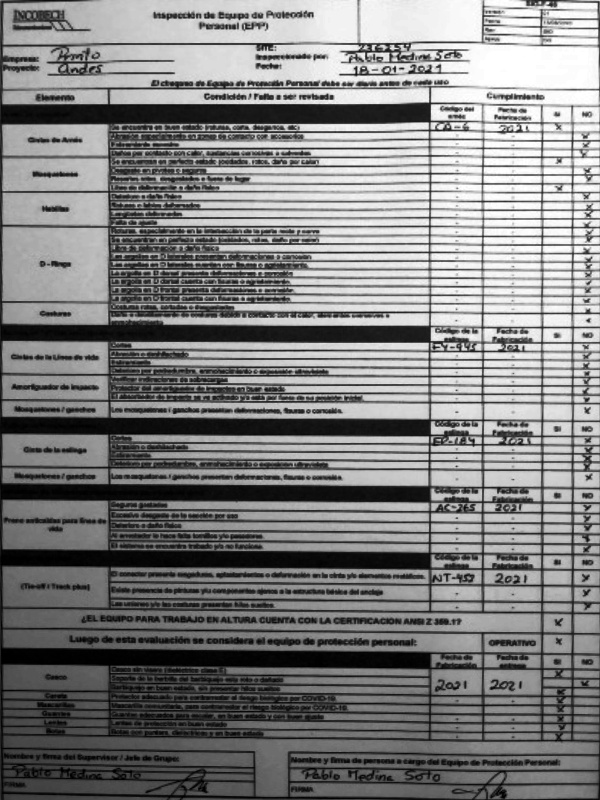 INCOBECH
Inspección de Equipo de Protección
Personal (EPP)
Empresa: Pronto
Proyecto: Andes
SITE: 236254
Inspeccionado por: Pablo Medina Soto
Fecha: 18-01-2021
El chequeo de Equipo de Protección Personal debe ser diario antes de cada uso
Elemento Condición / Falla a ser revisada Cumplimiento
Código del arnés Fecha de Fabricación SI NO
Cintas de Arnés
Se encuentra en buen estado (roturas, corte, desgarros, etc) CA-6 2021 X
Abrasión especialmente en zonas de contacto con accesorios
Estiramiento excesivo
Daños por contacto con calor, sustancias corrosivas o solventes
Mosquetones
Se encuentran en perfecto estado (oxidados, rotos, daño por calor)
Desgaste en pivotes o seguros
Resortes rotos, desgastados o fuera de lugar
Hebillas
Libre de deformación o daño físico
Deterioro o daño físico
Roturas o lados deformados
Longitudes deformadas
Falta de ajuste
D - Rings
Roturas, especialmente en la intersección de la parte recta y curva
Se encuentran en perfecto estado (oxidados, rotos, daño por calor)
Libre de deformación o daño físico
Las argollas en D laterales presentan deformaciones o corrosión
Las argollas en D laterales cuentan con fisuras o agrietamiento.
La argolla en D dorsal presenta deformaciones o corrosión
La argolla en D dorsal cuenta con fisuras o agrietamiento.
La argolla en D frontal presenta deformaciones o corrosión.
La argolla en D frontal cuenta con fisuras o agrietamiento.
Costuras
Costuras rotas, cortadas o desgastadas
Código de la eslinga Fecha de Fabricación SI NO
Cintas de la Línea de vida
Cortes 2021
Abrasión o deshilachado
Estiramiento
Deterioro por podredumbre, enmohecimiento o exposición ultravioleta
Amortiguador de impacto
Verificar indicaciones de sobrecargas
Protector del amortiguador de impactos en buen estado
El absorbedor de impacto se ve activado y/o esta por fuera de su posición inicial.
Mosquetones / ganchos Los mosquetones / ganchos presentan deformaciones, fisuras o corrosión.
Código de la eslinga Fecha de Fabricación SI NO
Cinta de la eslinga
Cortes EP-184 2021
Abrasión o deshilachado
Estiramiento
Deterioro por podredumbre, enmohecimiento o exposición ultravioleta
Mosquetones / ganchos Los mosquetones / ganchos presentan deformaciones, fisuras o corrosión.
Código de la eslinga Fecha de Fabricación SI NO
Freno anticaídas para línea de vida
Seguros gastados AC-265 2021
Excesivo desgaste de la sección por uso
Deterioro o daño físico
Al arrestador le hace falta tornillos y/o pasadores.
El sistema se encuentra trabado y/o no funciona.
Código de la eslinga Fecha de Fabricación SI NO
(Tie-off / Track plus)
El conector presenta rasgaduras, aplastamientos o deformación en la cinta y/o elementos metálicos. 2021
Existe presencia de pinturas y/u componentes ajenos a la estructura básica del anclaje
Las uniones y/o las costuras presentan hilos sueltos.
¿EL EQUIPO PARA TRABAJO EN ALTURA CUENTA CON LA CERTIFICACION ANSI Z 359.1? X
Luego de esta evaluación se considera el equipo de protección personal: OPERATIVO X
Fecha de Fabricación Fecha de entrega SI NO
Casco
Casco sin visera (dieléctrico clase E)
Soporte de la barbilla del barbiquejo esta roto o dañado
Barbiquejo en buen estado, sin presentar hilos sueltos
2021 2021
Careta Protector adecuado para contrarrestar el riesgo biológico por COVID-19.
Mascarillas Mascarilla comunitaria, para contrarrestar el riesgo biológico por COVID-19.
Guantes Guantes adecuados para escalar, en buen estado y con buen ajuste
Lentes Lentes de protección en buen estado
Botas Botas con puntera, dieléctricos y en buen estado
Nombre y firma del Supervisor / Jefe de Grupo:
Pablo Medina Soto
FIRMA
Nombre y firma de persona a cargo del Equipo de Protección Personal:
Pablo Medina Soto
FIRMA